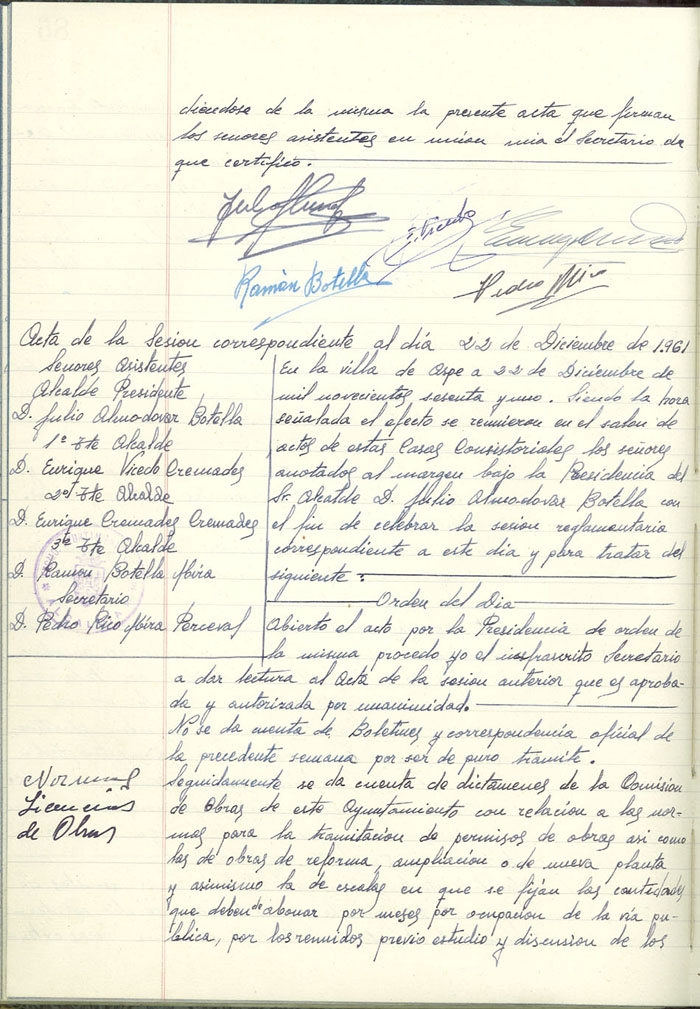 diendose de la misma la presente acta que firman
los señores asistentes en union mia el Secretario de
que certifico.
Ramón Botella
Pedro Mira
Acta de la Sesion correspondiente al día 22 de Diciembre de 1.961
Senores Asistentes
Alcalde Presidente
D. Julio Almodovar Botella
1º Tte Alcalde
D. Enrique Vicedo Cremades
2º Tte Alcalde
D. Enrique Cremades Cremades
3º Tte Alcalde
D. Ramon Botella Mira
Secretario
D. Pedro Rico Mira Perceval
En la villa de Aspe a 22 de Diciembre de
mil novecientos sesenta y uno. Siendo la hora
señalada el efecto se reunieron en el salon de
actos de estas Casas Consistoriales los señores
anotados al margen bajo la Presidencia del
Sr. Alcalde D. Julio Almodovar Botella con
el fin de celebrar la sesion reglamentaria
correspondiente a este dia y para tratar del
siguiente:
Orden del Dia
Abierto el acto por la Presidencia de orden de
la misma, procedo yo el infrascrito Secretario
a dar lectura al Acta de la sesion anterior que es aproba-
da y autorizada por unanimidad.
No se da cuenta de Boletines y correspondencia oficial de
la precedente semana por ser de puro tramite.
Normas
Licencias
de Obras
Seguidamente se da cuenta de dictamenes de la Comision
de Obras de este Ayuntamiento con relacion a las nor-
mas para la tramitacion de permisos de obras asi como
las de obras de reforma, ampliacion o de nueva planta
y asimismo la de escalas en que se fijan las cantidades
que deben de abonar por meses por ocupacion de la via pu-
blica, por los reunidos previo estudio y discusion de los